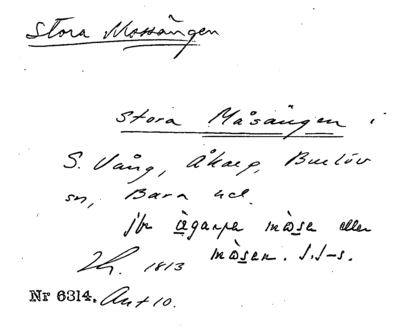 Stora Mossängen
Stora Måsängen i
S. Vång, Åkarp, Burlöv
sn, Bara hd.
jfr ägarpa måse eller
måsen. S.S-s.
1813
Nr 6314. Ant 10.